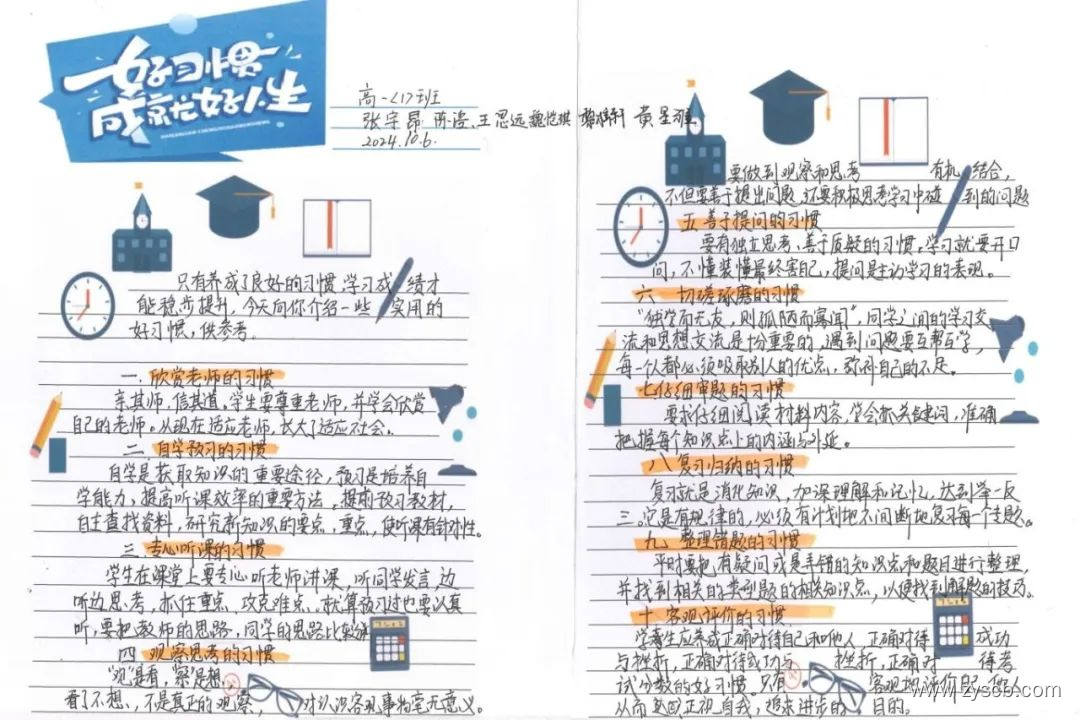 好习惯
成就好人生
高一<17>班
张宇昂 陈浩、王思远 魏恺琪 黄星雅
2024.10.6.
只有养成了良好的习惯学习成绩才
能稳步提升,今天向你介绍一些实用的
好习惯,供参考。
一. 欣赏老师的习惯
亲其师,信其道,学生要尊重老师,并学会欣赏
自己的老师。从现在适应老师,长大了适应社会。
二. 自学预习的习惯
自学是获取知识的重要途径,预习是培养自
学能力、提高听课效率的重要方法。提前预习教材,
自主查找资料,研究新知识的要点,重点,使听课有针对性。
三. 专心听课的习惯
学生在课堂上要专心听老师讲课,听同学发言,边
听边思考,抓住重点,攻克难点。就算预习过也要认真
听,要把教师的思路,同学的思路比较
四 观察思考的习惯
“观”是看,“察”是想,
看了不想、不是真正的观察, 对认识客观事物毫无意义。
要做到观察和思考有机结合,
不但要善于提出问题,还要积极思考学习中碰到的问题
五 善于提问的习惯
要有独立思考、善于质疑的习惯,学习就要开口
问,不懂装懂最终害自己,提问是主动学习的表现。
六、切磋琢磨的习惯
“独学而无友,则孤陋而寡闻”,同学之间的学习交
流和思想交流是十分重要的,遇到问题要互帮互学,
每一个人都必须吸取别人的优点,弥补自己的不足。
七仔细审题的习惯
要求仔细阅读材料内容,学会抓关键词,准确
把握每个知识点上的内涵与外延。
八复习归纳的习惯
复习就是消化知识,加深理解和记忆,达到举一反
三。它是有规律的,必须有计划地不间断地复习每一个主题。
九、整理错题的习惯
平时要把有疑问或是弄错的知识点和题目进行整理,
并找到相关的类型题的相关知识点,以便找到解题的技巧。
十.客观评价的习惯
学生应养成正确对待自己和他人,正确对待成功
与挫折,正确对待成功与挫折,正确对待考
试分数的好习惯。只有客观地评价自己、他人
从而正视自我,追求进步的目的。
www.zyscb.com